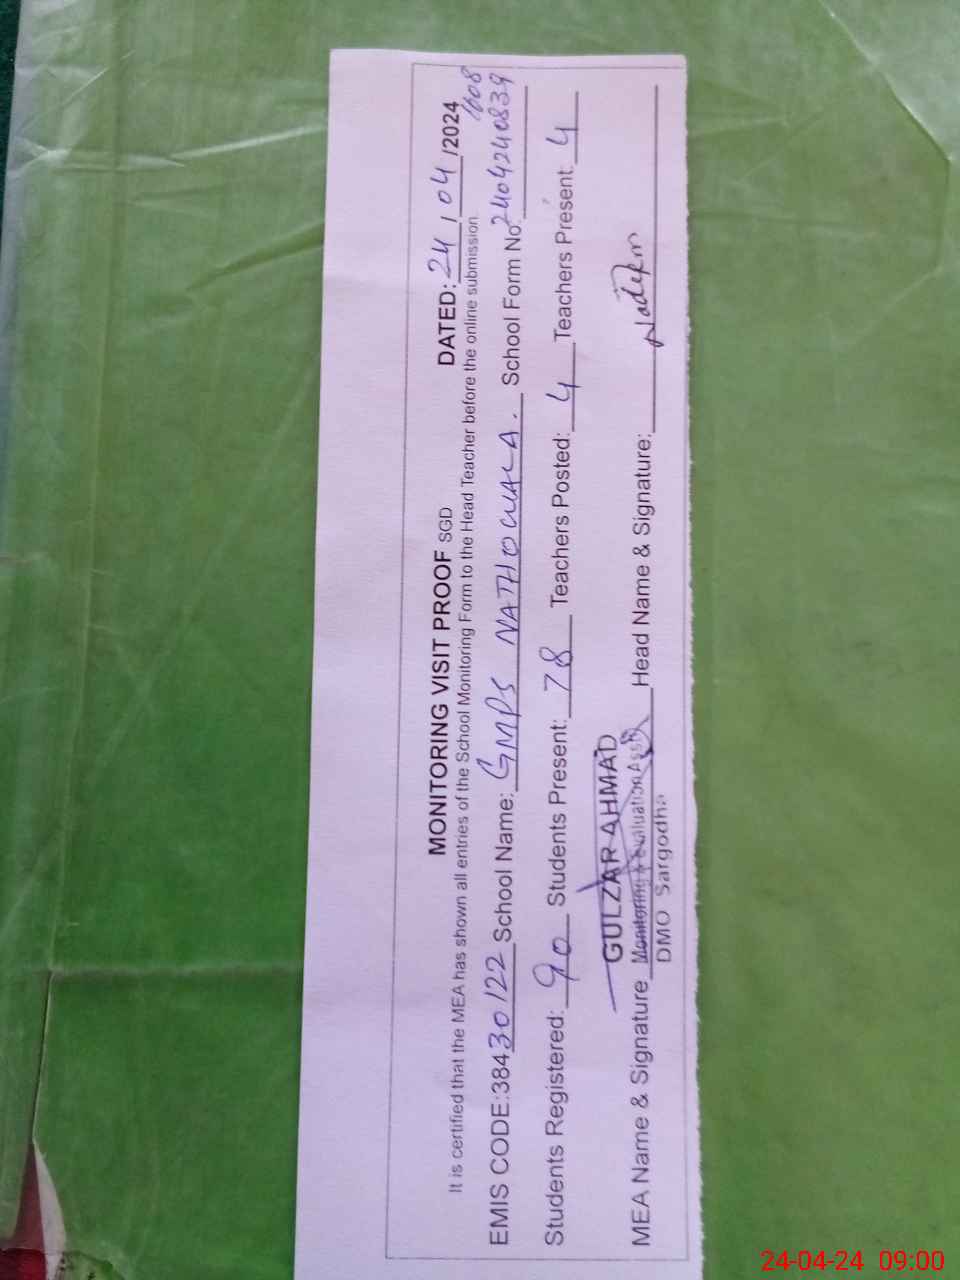 MONITORING VISIT PROOF SGD DATED: 24/04/2024
It is certified that the MEA has shown all entries of the School Monitoring Form to the Head Teacher before the online submission.
EMIS CODE:38430122 School Name: GMPS NATHOWALA. School Form No: 2404240839
Students Registered: 90 Students Present: 78 Teachers Posted: 4 Teachers Present: 4
GULZAR AHMAD
MEA Name & Signature Monitoring & Evaluation Asstt Head Name & Signature: Nadeem
DMO Sargodha
24-04-24 09:00